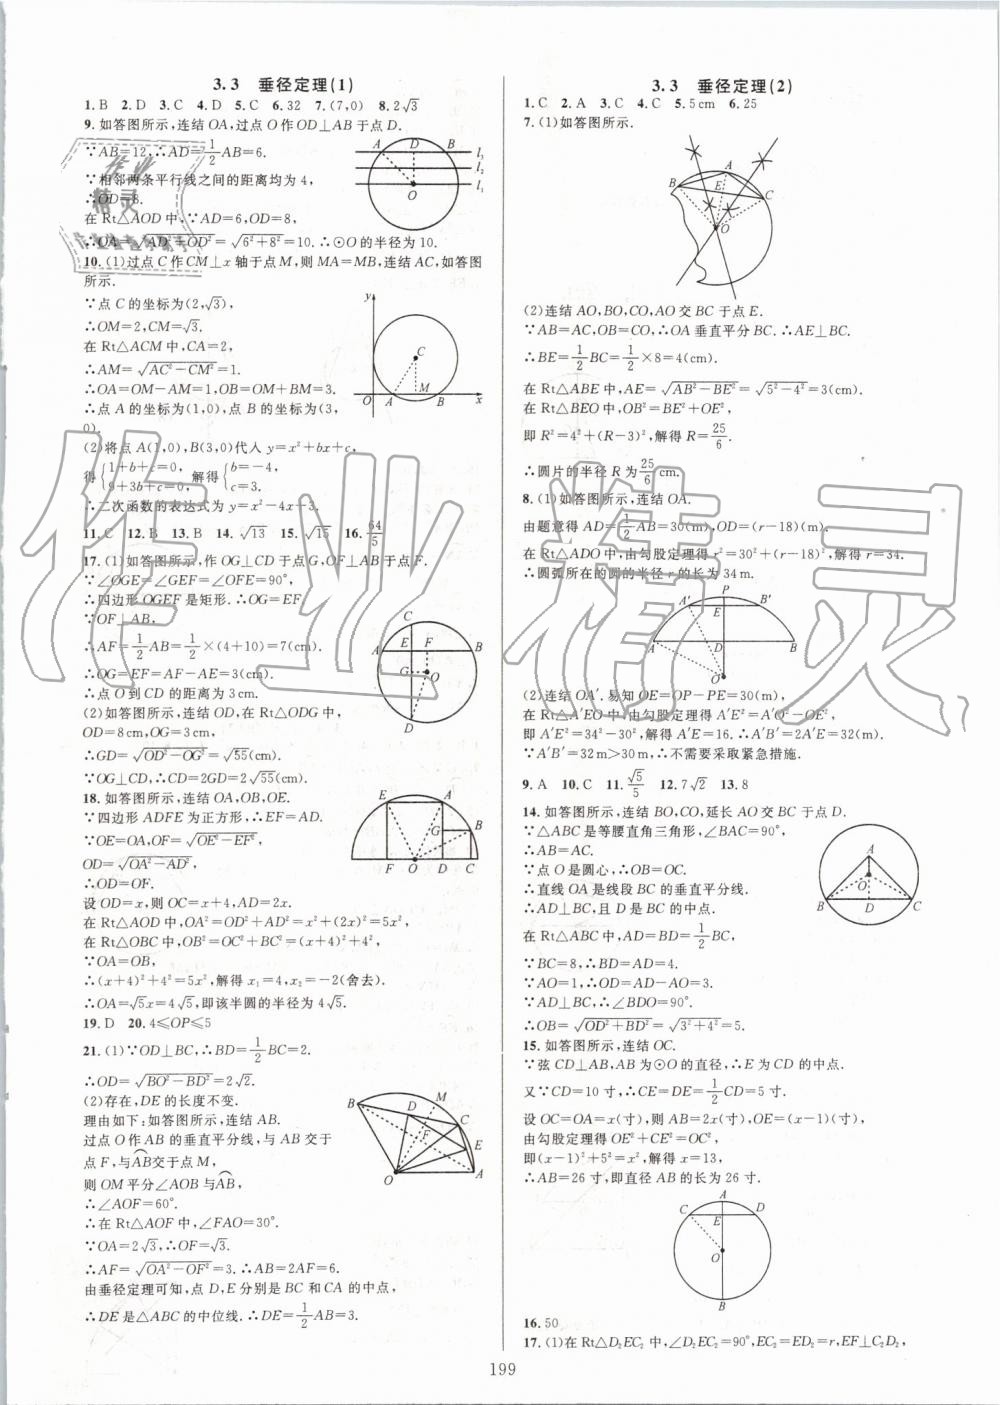 3.3 垂径定理(1)
1.B 2.D 3.C 4.D 5.C 6.32 7.(7,0) 8.2√3
9.如答图所示,连结OA,过点O作OD⊥AB于点D.
∵AB=12,∴AD=1/2AB=6.
∵相邻两条平行线之间的距离均为4,
∴OD=8.
在Rt△AOD中,∵AD=6,OD=8,
∴OA=√(AD²+OD²)=√(6²+8²)=10.∴⊙O的半径为10.
10.(1)过点C作CM⊥x轴于点M,则MA=MB,连结AC,如答图
所示.
∵点C的坐标为(2,√3),
∴OM=2,CM=√3.
在Rt△ACM中,CA=2,
∴AM=√(AC²-CM²)=1.
∴OA=OM-AM=1,OB=OM+BM=3.
∴点A的坐标为(1,0),点B的坐标为(3,
0).
(2)将点A(1,0),B(3,0)代入y=x²+bx+c,
得{1+b+c=0, 9+3b+c=0. 解得{b=-4, c=3.
∴二次函数的表达式为y=x²-4x+3.
11.C 12.B 13.B 14.√13 15.√15 16.64/5
17.(1)如答图所示,作OG⊥CD于点G,OF⊥AB于点F.
∵∠OGE=∠GEF=∠OFE=90°,
∴四边形OGEF是矩形.∴OG=EF.
∵OF⊥AB,
∴AF=1/2AB=1/2×(4+10)=7(cm).
∴OG=EF=AF-AE=3(cm).
∴点O到CD的距离为3cm.
(2)如答图所示,连结OD,在Rt△ODG中,
OD=8cm,OG=3cm,
∴GD=√(OD²-OG²)=√55(cm).
∵OG⊥CD,∴CD=2GD=2√55(cm).
18.如答图所示,连结OA,OB,OE.
∵四边形ADFE为正方形,∴EF=AD.
∵OE=OA,OF=√(OE²-EF²),
OD=√(OA²-AD²),
∴OD=OF.
设OD=x,则OC=x+4,AD=2x.
在Rt△AOD中,OA²=OD²+AD²=x²+(2x)²=5x²,
在Rt△OBC中,OB²=OC²+BC²=(x+4)²+4²,
∵OA=OB,
∴(x+4)²+4²=5x²,解得x₁=4,x₂=-2(舍去).
∴OA=√5x=4√5,即该半圆的半径为4√5.
19.D 20.4≤OP≤5
21.(1)∵OD⊥BC,∴BD=1/2BC=2.
∴OD=√(BO²-BD²)=2√2.
(2)存在,DE的长度不变.
理由如下:如答图所示,连结AB.
过点O作AB的垂直平分线,与AB交于
点F,与AB交于点M,
则OM平分∠AOB与AB,
∴∠AOF=60°.
∴在Rt△AOF中,∠FAO=30°.
∵OA=2√3,∴OF=√3.
∴AF=√(OA²-OF²)=3.∴AB=2AF=6.
由垂径定理可知,点D,E分别是BC和CA的中点,
∴DE是△ABC的中位线.∴DE=1/2AB=3.
3.3 垂径定理(2)
1.C 2.A 3.C 4.C 5.5cm 6.25
7.(1)如答图所示.
(2)连结AO,BO,CO,AO交BC于点E.
∵AB=AC,OB=CO,∴OA垂直平分BC.∴AE⊥BC.
∴BE=1/2BC=1/2×8=4(cm).
在Rt△ABE中,AE=√(AB²-BE²)=√(5²-4²)=3(cm).
在Rt△BEO中,OB²=BE²+OE²,
即R²=4²+(R-3)²,解得R=25/6.
∴圆片的半径R为25/6cm.
8.(1)如答图所示,连结OA.
由题意得AD=1/2AB=30(m),OD=(r-18)(m).
在Rt△ADO中,由勾股定理得r²=30²+(r-18)²,解得r=34.
∴圆弧所在的圆的半径r的长为34m.
(2)连结OA′.易知OE=OP-PE=30(m),
在Rt△A′EO中,由勾股定理得A′E²=A′O²-OE²,
即A′E²=34²-30²,解得A′E=16.∴A′B′=2A′E=32(m).
∵A′B′=32m>30m,∴不需要采取紧急措施.
9.A 10.C 11.√5/5 12.7√2 13.8
14.如答图所示,连结BO,CO,延长AO交BC于点D.
∵△ABC是等腰直角三角形,∠BAC=90°,
∴AB=AC.
∵点O是圆心,∴OB=OC.
∴直线OA是线段BC的垂直平分线.
∴AD⊥BC,且D是BC的中点.
在Rt△ABC中,AD=BD=1/2BC,
∵BC=8,∴BD=AD=4.
∵AO=1,∴OD=AD-AO=3.
∵AD⊥BC,∴∠BDO=90°.
∴OB=√(OD²+BD²)=√(3²+4²)=5.
15.如答图所示,连结OC.
∵弦CD⊥AB,AB为⊙O的直径,∴E为CD的中点.
又∵CD=10寸,∴CE=DE=1/2CD=5寸.
设OC=OA=x(寸),则AB=2x(寸),OE=(x-1)(寸).
由勾股定理得OE²+CE²=OC²,
即(x-1)²+5²=x²,解得x=13,
∴AB=26寸,即直径AB的长为26寸.
16.50
17.(1)在Rt△D₂EC₂中,∠D₂EC₂=90°,EC₂=ED₂=r,EF⊥C₂D₂,
199
作业精灵